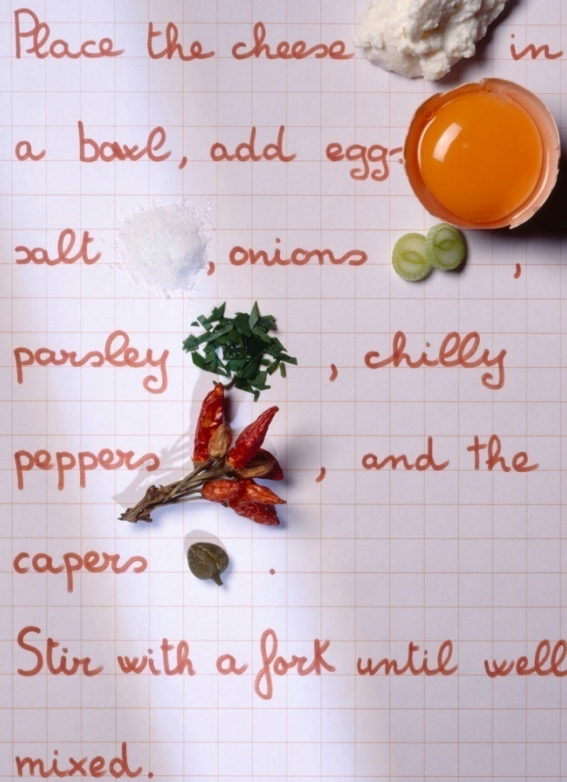 Place the cheese in
a bowl, add egg-
salt , onions ,
parsley , chilly
peppers , and the
capers .
Stir with a fork until well
mixed.